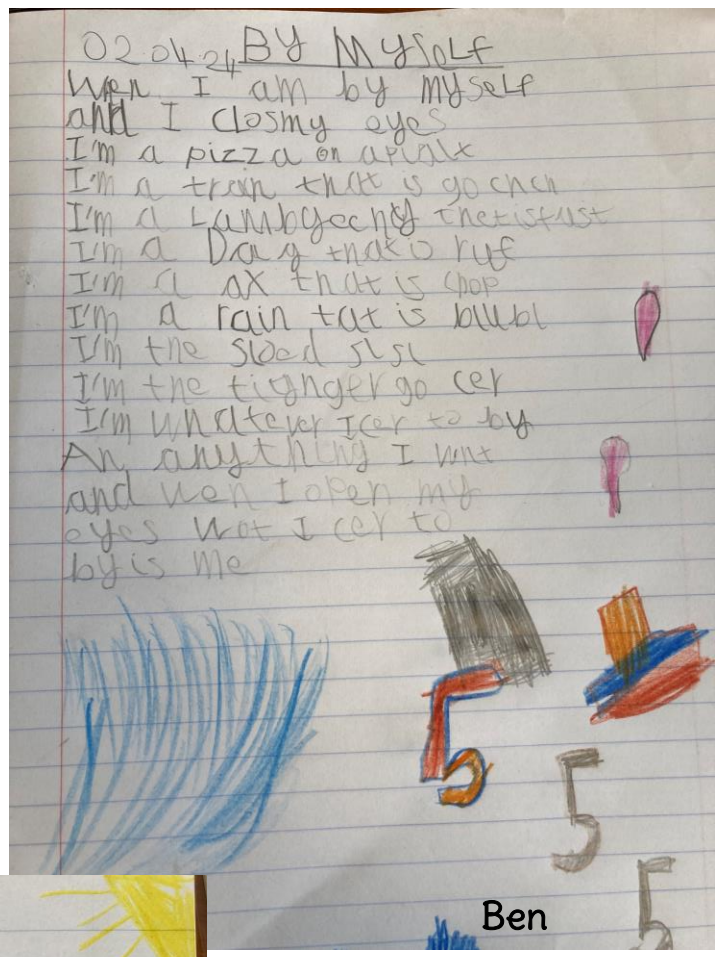 02.04.24 By Myself
Wen I am by myself
and I closmy eyes
I'm a pizza on apialt
I'm a train that is go chch
I'm a Lambygeeny thetisfast
I'm a Dog that is ruf
I'm a ax that is chop
I'm a rain tat is blubl
I'm the sloed slsl
I'm the go cer
I'm whatever I cer to by
An anything I wnt
and wen I open my
eyes wot I cer to
by is me
5
5
5
Ben